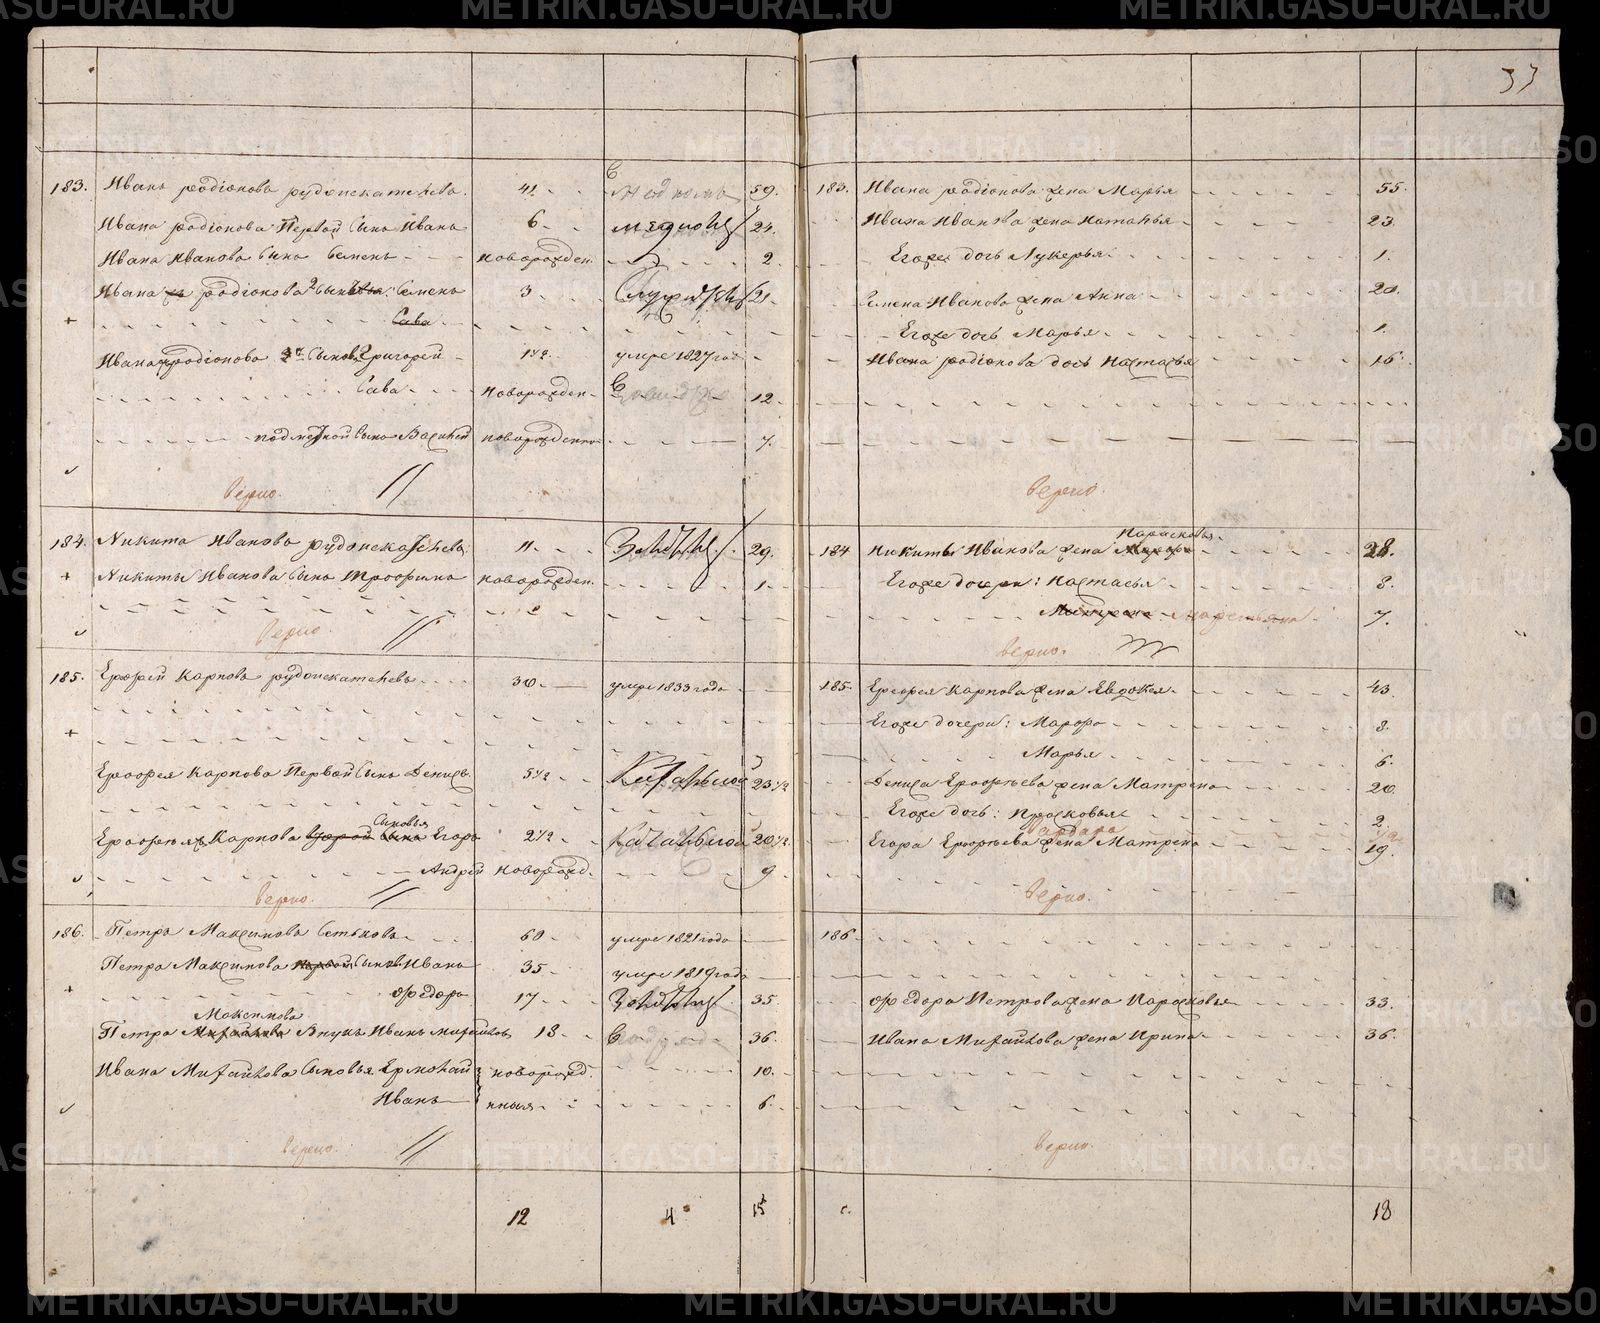 METRIKI.GASO-URAL.RU
33
183. Иванъ родіоновъ рудоискателевъ. 41 59.
Ивана родіонова Первой сынъ Иванъ 6 24.
Ивана Иванова сынъ Семенъ новорожден. 2.
Ивана родіонова 2 сынъ Семенъ 3 21.
Сава
Ивана родіонова сынъ Григорей 1½ умре 1827 год
Сава новорожден 12.
сынъ Василей новорожденны 7.
верно.
184. Никита Ивановъ рудоискателевъ 11 29.
Никиты Иванова сынъ Трофимъ новорожден. 1.
верно.
185. Ерофей Карповъ рудоискателевъ 30 умре 1833 года
Ерофея Карпова Первой сынъ Денисъ. 5½ 23½
Сыновья
Ерофея Карпова второй сынъ Егоръ 2½ 20½
Андрей новорожд. 9.
верно.
186. Петръ Максимовъ Сеньковъ 60 умре 1821 года
Петра Максимова сынъ Иванъ 35 умре 1819 года
Федоръ 17 35.
Максимова
Петра Внукъ Иванъ михайловъ 18 36.
Ивана Михайлова Сыновья Ермолай новорожд. 10.
Иванъ нныя 6.
верно.
12 4 15
183. Ивана родіонова жена Марья 55.
Ивана Иванова жена Наталья 23.
Егоже дочь Лукерья 1.
Семена Иванова жена Анна 20.
Егоже дочь Марья 1.
Ивана родіонова дочь Настасья 16.
верно.
Парасковья
184 Никиты Иванова жена 28.
Егоже дочери: Настасья 8.
7.
верно.
185. Ерофея Карпова жена Евдокея 43.
Егоже дочери: Марфа 8.
Марья 6.
Дениса Ерофеева жена Матрена 20.
Егоже дочь: Прасковья 2.
Варвара
Егора Ерофеева жена Матрена 19.
верно.
186
Федора Петрова жена Парасковья 33.
Ивана Михайлова жена Ирина 36.
верно.
18